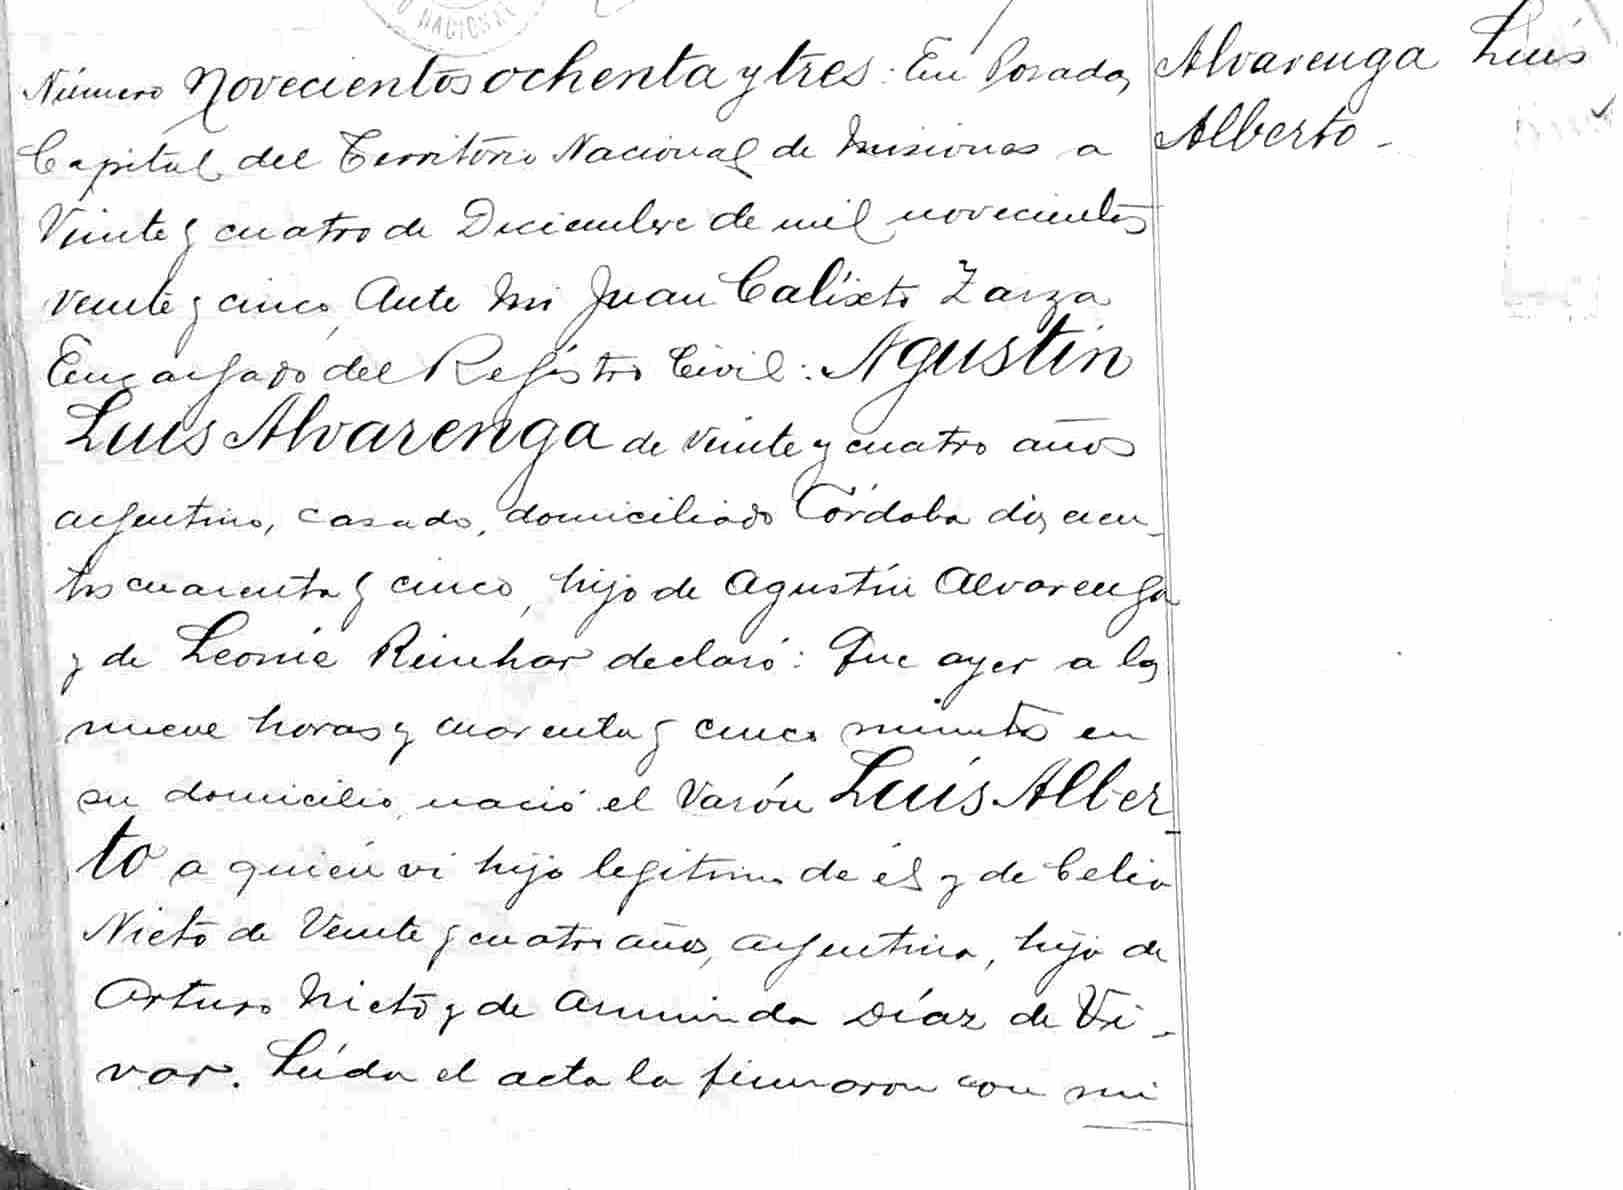 O NACIONAL
Número Novecientos ochenta y tres: En Posadas,
Capital del Territorio Nacional de Misiones a
Veinte y cuatro de Diciembre de mil novecientos
veinte y cinco, Ante mi Juan Calixto Zarza
Encargado del Registro Civil: Agustin
Luis Alvarenga de veinte y cuatro años
argentino, casado, domiciliado Córdoba doscien-
tos cuarenta y cinco, hijo de Agustín Alvarenga
y de Leonie Reinhar declaró: Que ayer a las
nueve horas y cuarenta y cinco minutos en
su domicilio, nació el Varón Luis Alber-
to a quien vi hijo legitimo de él y de Celia
Nieto de Veinte y cuatro años, argentina, hija de
Arturo Nieto y de Arminda Díaz de Vi-
var. Leída el acta la firmaron con mi
Alvarenga Luis
Alberto -